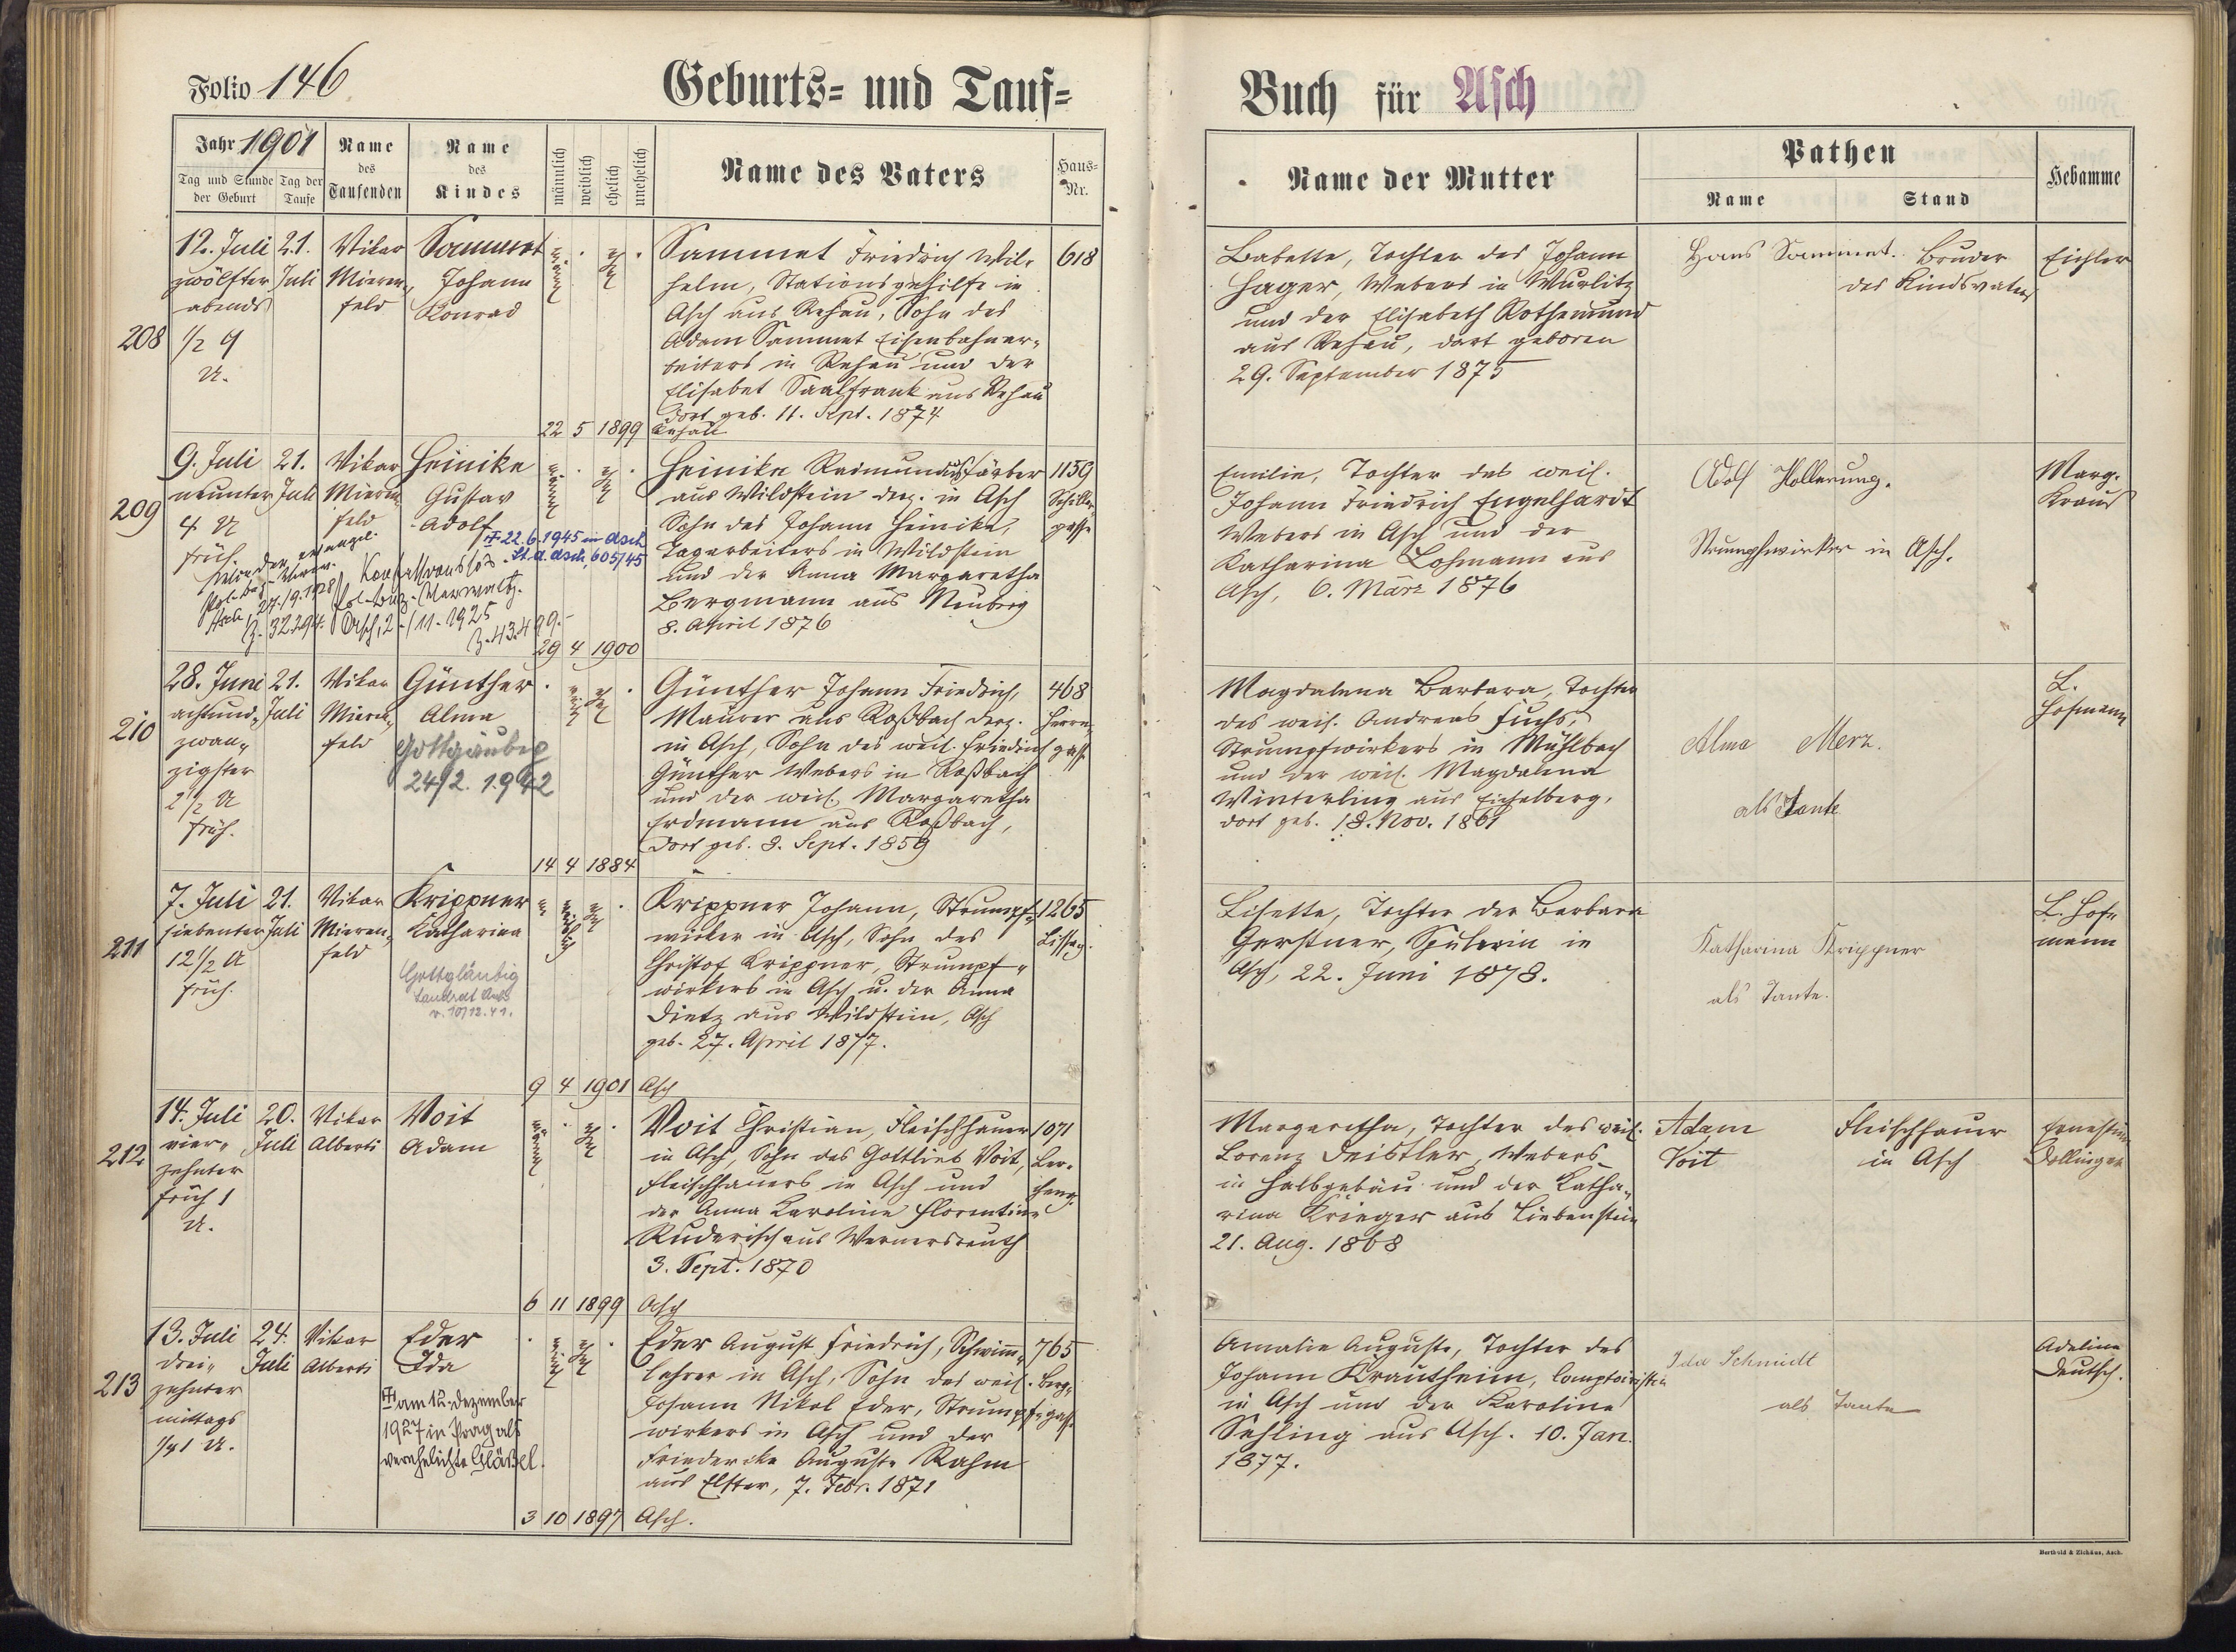 Folio 146
Geburts- und Tauf-
Buch für Asch
Jahr 1901
Tag und Stunde der Geburt
Tag der Taufe
Name des Taufenden
Name des Kindes
männlich
weiblich
ehelich
unehelich
Name des Vaters
Haus-Nr.
Name der Mutter
Pathen
Name
Stand
Hebamme
208
12. Juli
zwölfter
abends
1/2 9
U.
21.
Juli
Vikar
Mieren-
feld
Sammet
Johann
Konrad
Sammet Friedrich Wil-
helm, Stationsgehilfe in
Asch aus Rehau, Sohn des
Adam Sammet Eisenbahnar-
beiters in Rehau und der
Elisabet Saalfrank aus Rehau
dort geb. 11. Sept. 1874
22 5 1899 Rehau
618
Babette, Tochter des Johann
Hager, Webers in Wurlitz
und der Elisabeth Rothemund
aus Rehau, dort geboren
29. September 1875
Hans Sammet. Bruder
des Kindsvaters
Eichler
209
9. Juli
neunter
4 U
früh.
21.
Juli
Vikar
Mieren-
feld
Heinike
Gustav
Adolf
22.6.1945 in Asch
St.A. Asch, 605/45
Konfessionslos
Pol. Bez. Verwaltg.
Asch, 2/11. 1925
Z. 43.499.-
Asch, 27./9. 1928
Z. 32294.
Heinike Raimundus, Färber
aus Wildstein derz. in Asch
Sohn des Johann Heinike,
Tagarbeiters in Wildstein
und der Anna Margaretha
Bergmann aus Neuberg
8. April 1876
29 4 1900
1159
Schiller-
gasse
Emilie, Tochter des weil.
Johann Friedrich Engelhardt
Webers in Asch und der
Katharina Lohmann aus
Asch, 6. März 1876
Adolf Hollerung.
Strumpfwirker in Asch.
Marg.
Kraus
210
28. Juni
achtund-
zwan-
zigster
2 1/2 U
früh.
21.
Juli
Vikar
Mieren-
feld
Günther
Alma
Gottgläubig
24/2. 1942
Günther Johann Friedrich,
Maurer aus Roßbach derz.
in Asch, Sohn des weil. Friedrich
Günther Webers in Roßbach
und der weil. Margaretha
Erdmann aus Roßbach,
dort geb. 8. Sept. 1859
14 4 1884
468
Herrn-
gasse
Magdalena Barbara, Tochter
des weil. Andreas Fuchs,
Strumpfwirkers in Mühlbach
und der weil. Magdalena
Winterling aus Eichelberg,
dort geb. 18. Nov. 1861
Alma Merz.
als Tante
L.
Hofmann
211
7. Juli
siebenter
12 1/2 U
früh.
21.
Juli
Vikar
Mieren-
feld
Krippner
Katharina
Gottgläubig
Landrat Asch
v. 10/12.41.
Krippner Johann, Strumpf-
wirker in Asch, Sohn des
Christof Krippner, Strumpf-
wirkers in Asch u. der Anna
Dietz aus Wildstein, Asch
geb. 27. April 1877.
9 4 1901 Asch
1265
Lisette, Tochter der Barbara
Gerstner, Spulerin in
Asch, 22. Juni 1878.
Katharina Krippner
als Tante.
L. Hof-
mann
212
14. Juli
vier-
zehnter
früh 1
U.
20.
Juli
Vikar
Alberti
Voit
Adam
Voit Christian, Fleischhauer
in Asch, Sohn des Gottlieb Voit,
Fleischhauers in Asch und
der Anna Karoline Florentine
Ruderisch aus Wernersreuth
3. Sept. 1870
6 11 1899 Asch
1071
Margaretha, Tochter des weil.
Lorenz Deistler, Webers
in Halbgebäu und der Katha-
rina Krieger aus Liebenstein
21. Aug. 1868
Adam
Voit
Fleischhauer
in Asch
Ernestine
Dollinger
213
13. Juli
drei-
zehnter
mittags
1/4 1 U.
24.
Juli
Vikar
Alberti
Eder
Ida
am 12. Dezember
1927 in Prag als
verehelichte Gläßel.
Eder August Friedrich, Schwimm-
lehrer in Asch, Sohn des weil.
Johann Nikol Eder, Strumpf-
wirkers in Asch und der
Friedericke Auguste Rahm
aus Elster, 7. Febr. 1871
3 10 1897 Asch.
765
Berg-
gasse
Amalie Auguste, Tochter des
Johann Krautheim, Comptoiristin
in Asch und der Karoline
Sehling aus Asch. 10. Jan.
1877.
Ida Schmidt
als Tante
Adeline
Deutsch.
Berthold & Zickäus, Asch.